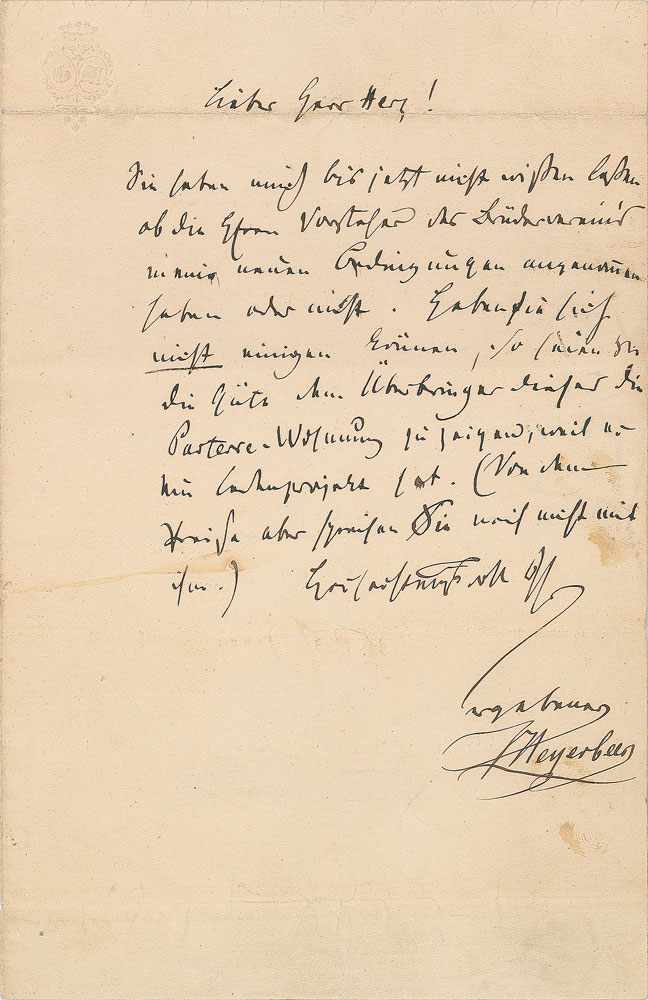 Lieber Herr Herz!
Sie haben mich bis jetzt nicht wißen laßen
ob die Herrn Vorsteher des Brüdervereins
meine neuen Bedingungen angenommen
haben oder nicht. Haben Sie sich
nicht einigen können, so haben Sie
die Güte dem Überbringer dieses die
Parterre-Wohnung zu zeigen, weil er
hat. (Von dem
Preise aber sprechen Sie noch nicht mit
ihm.) Hochachtungsvoll
ergebener
Meyerbeer